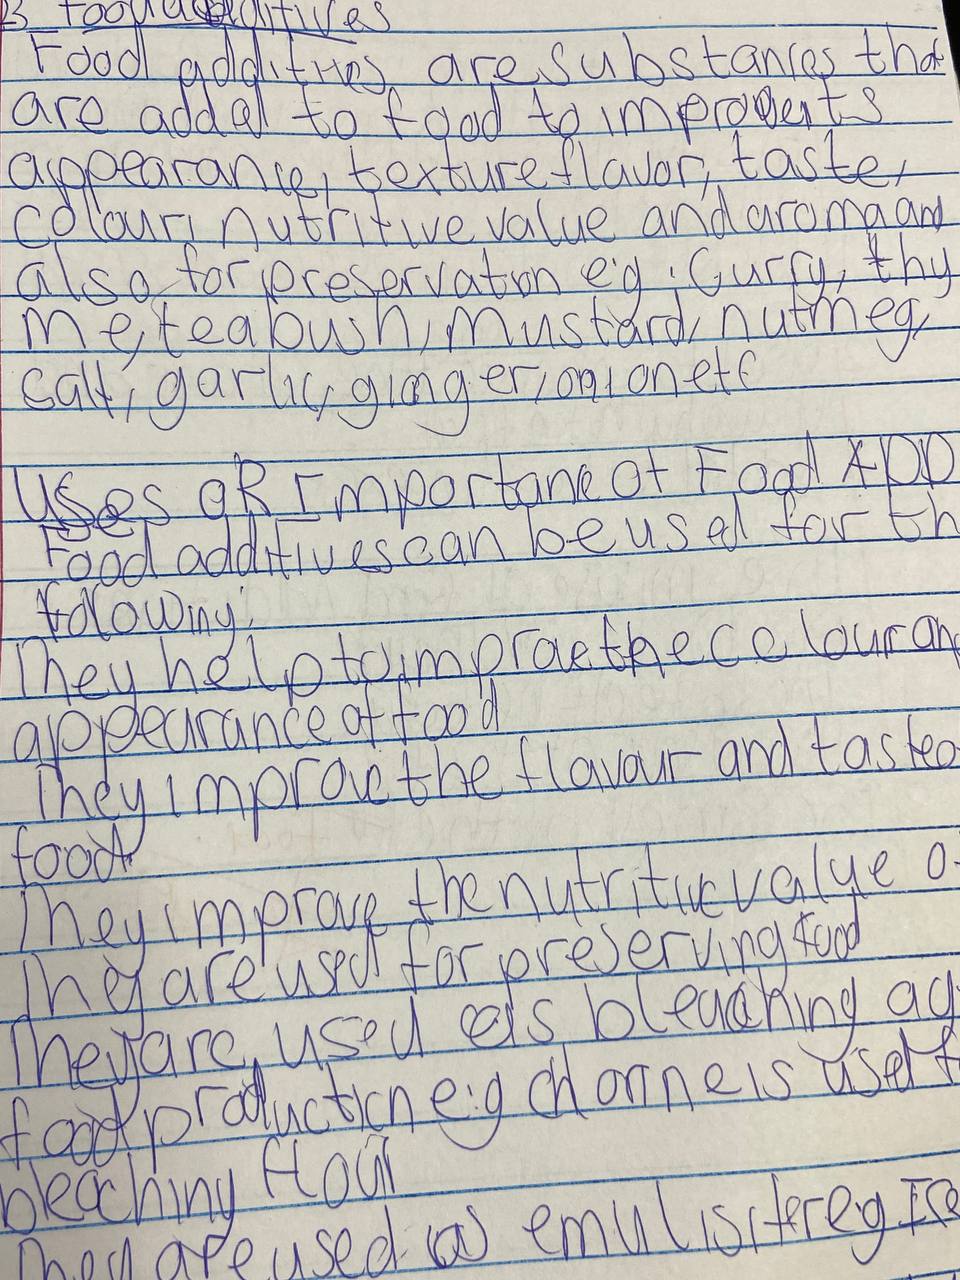 B food additives
Food additives are substances that
are added to food to improve its
appearance, texture flavor, taste,
colour, nutritive value and aroma and
also for preservation e.g. Curry, thy
me, tea bush, mustard, nutmeg,
salt, garlic, ginger, onion etc
Uses OR Importance of Food ADD
Food additives can be used for th
following:
They help to improve the colour an
appearance of food
They improve the flavour and taste o
food
They improve the nutritive value o
They are used for preserving food
They are used as bleaching ag
food production e.g chlorine is used f
bleaching flour
They are used as emulsifier eg Ice